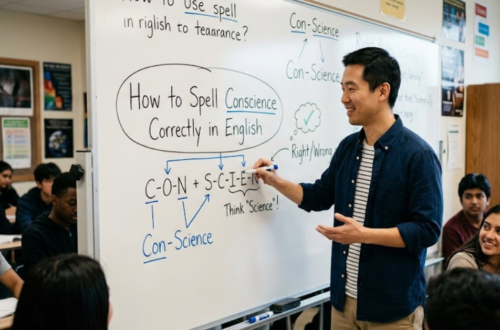 How to Use spell
in riglish to tearance?
Con-Science
Con-Science
How to Spell Conscience
Correctly in English
Right/Wrong
C-O-N + S-C-I-E-N
Think "Science"!
Con-Science